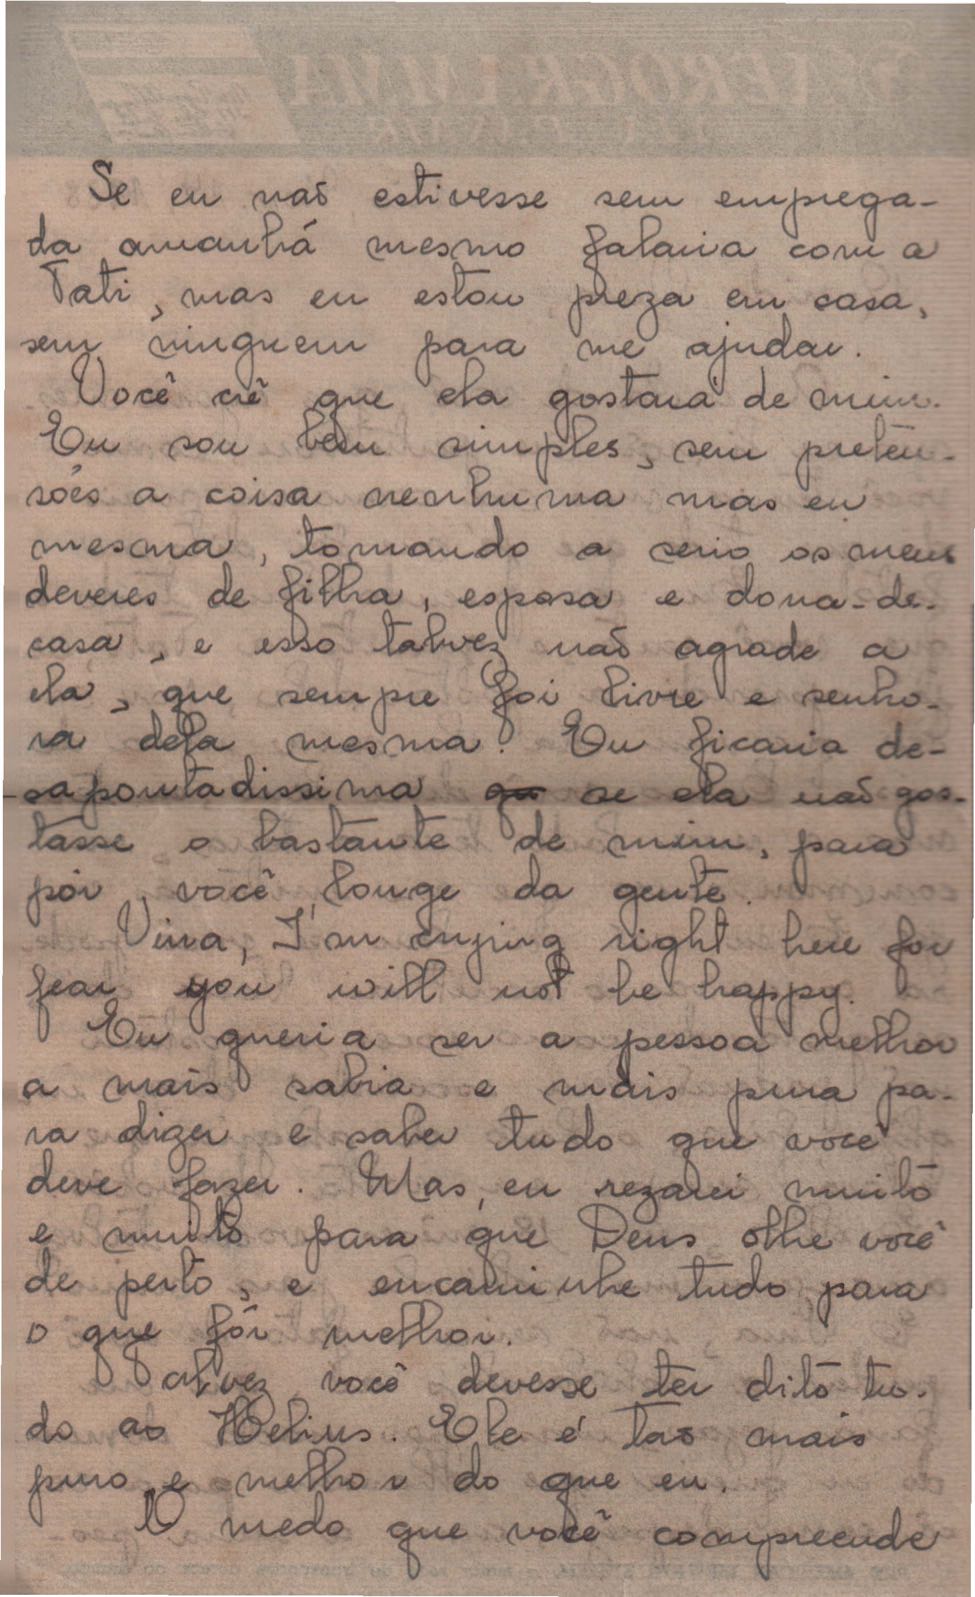 Se eu não estivesse sem emprega-
da amanhã mesmo falaria com a
Tati, mas eu estou preza em casa,
sem ninguem para me ajudar.
Você crê que ela gostará de mim.
Eu sou bem simples, sem preten-
sões a coisa nenhuma mas eu
mesma, tomando a serio os meus
deveres de filha, esposa e dona-de-
casa, e esso talvez não agrade a
ela, que sempre foi livre e senho-
ra dela mesma. Eu ficaria de-
sapontadissima se ela não gos-
tasse o bastante de mim, para
pôr você longe da gente.
I'm crying right here for
fear you will not be happy.
Eu queria ser a pessoa melhor
a mais sabia e mais pura pa-
ra dizer e saber tudo que você
deve fazer. Mas, eu rezarei muito
e muito para que Deus olhe você
de perto, e encaminhe tudo para
o que fôr melhor.
Talvez você devesse ter dito tu-
do ao Helius. Ele é tão mais
puro e melhor do que eu.
O medo que você compreende